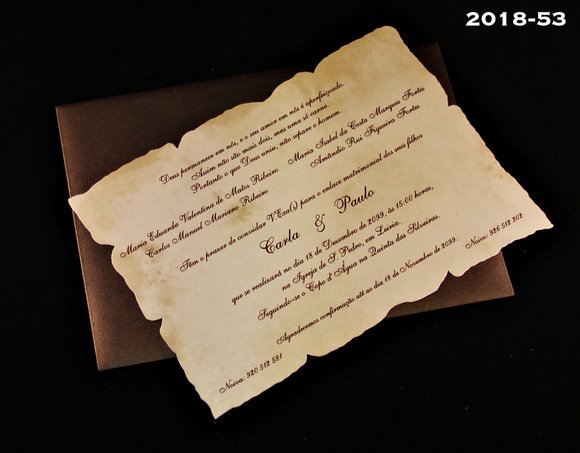 2018-53
Deus permanece em nós, e o seu amor em nós é aperfeiçoado.
Assim não são mais dois, mas uma só carne.
Portanto o que Deus uniu, não separe o homem.
Maria Eduarda Valentina de Matos Ribeiro Maria Isabel da Costa Marques Fortes
Carlos Manuel Mariano Ribeiro Amândio Rui Figueira Fortes
Têm o prazer de convidar V.Exa(s) para o enlace matrimonial dos seus filhos
Carla & Paulo
que se realizará no dia 18 de Dezembro de 2099, às 15:00 horas,
na Igreja de S. Pedro, em Leiria.
Seguindo-se o Copo d' Água na Quinta das Silveiras.
Agradecemos confirmação até ao dia 18 de Novembro de 2099.
Noiva: 920 512 581 Noivo: 926 512 302